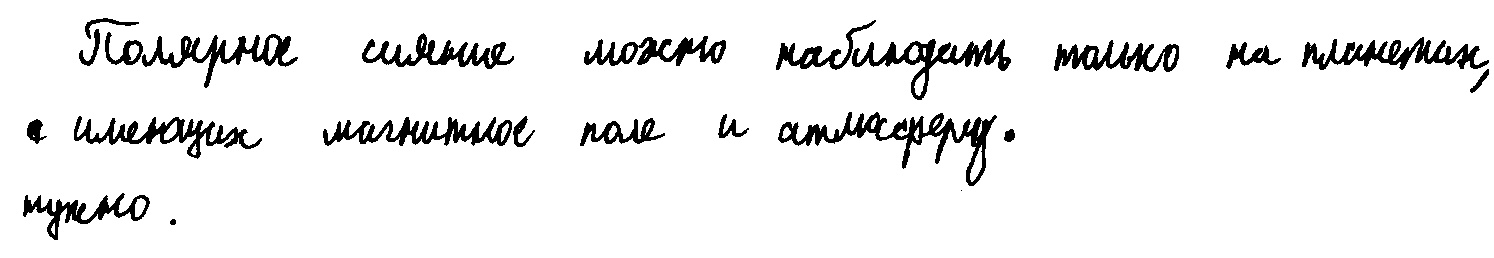 Полярное сияние можно наблюдать только на планетах,
имеющих магнитное поле и атмосферу.
нужно.